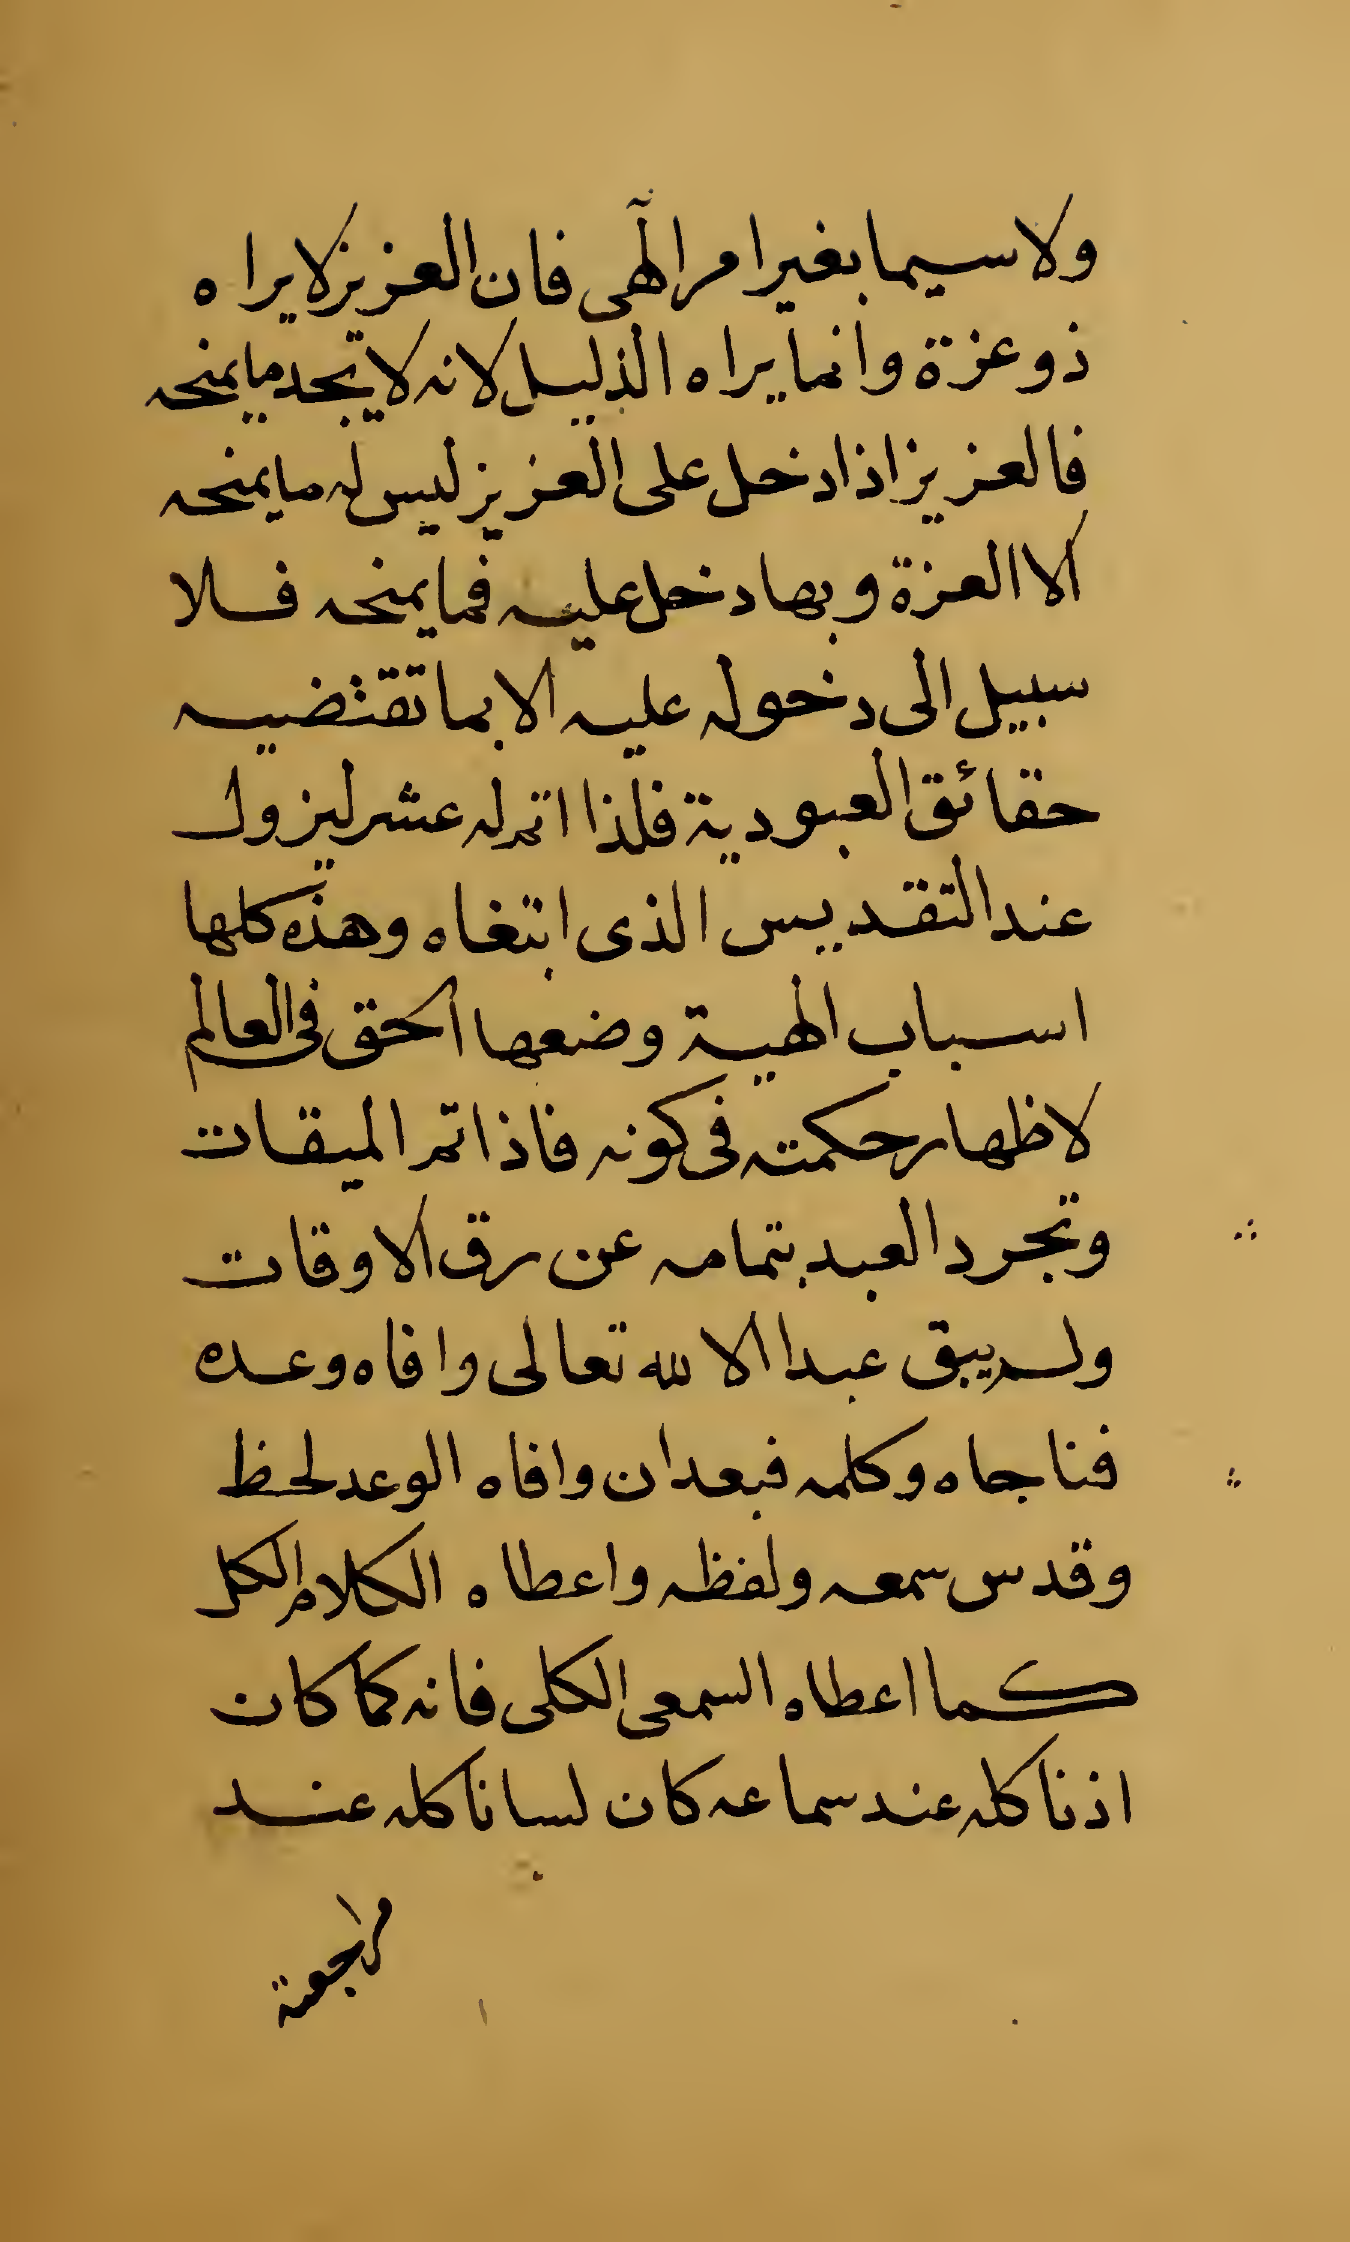 ولا سيما بغير امر الٓهي فان العزيز لا يراه
ذو عزة وانما يراه الذليل لانه لا يجد ما يمنحه
فالعزيز اذا دخل على العزيز ليس له ما يمنحه
الا العزة وبها دخل عليه فما يمنحه فلا
سبيل الى دخوله عليه الا بما تقتضيه
حقائق العبودية فلذا اتم له عشر ليزول
عند التقديس الذى ابتغاه وهذه كلها
اسباب الهية وضعها الحق فى العالم
لاظهار حكمته فى كونه فاذا تم الميقات
وتجرد العبد بتمامه عن رق الاوقات
ولم يبق عبدا الا لله تعالى وافاه وعده
فناجاه وكلمه فبعد ان وافاه الوعد لحظ
وقدس سمعه ولفظه واعطاه الكلام الكل
كما اعطاه السمعى الكلى فانه كما كان
اذنا كله عند سماعه كان لسانا كله عند
مراجعة